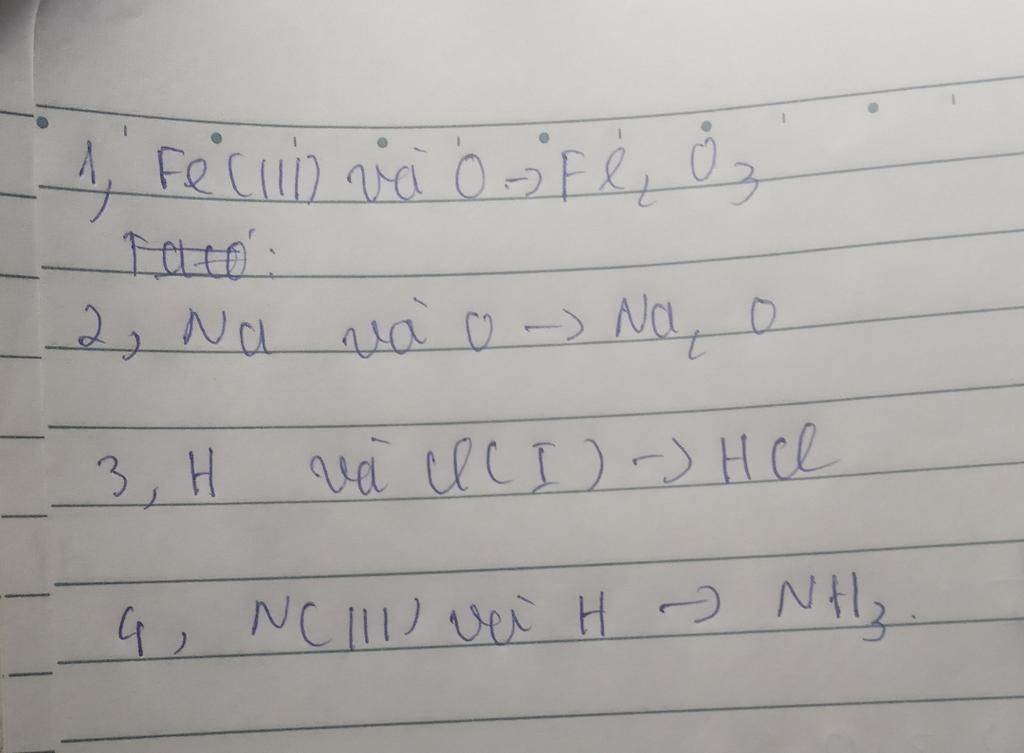 1, Fe(III) và O -> Fe2 O3
2, Na và O -> Na2 O
3, H và Cl(I) -> HCl
4, N(III) và H -> NH3.